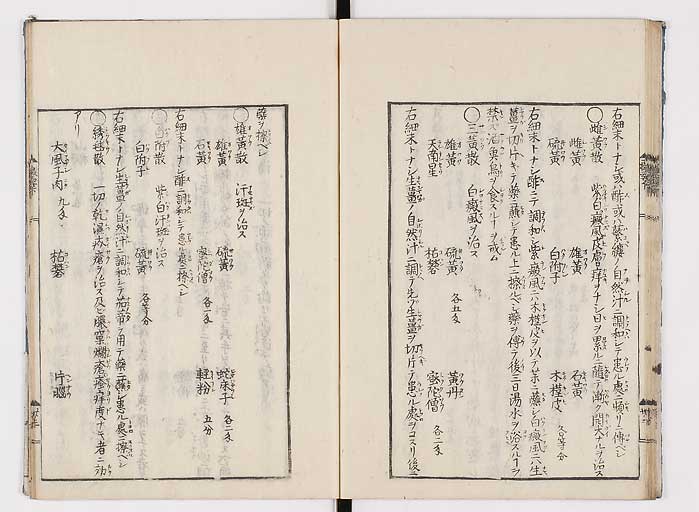 右細末トナシ或ハ酢或ハ蘩蔞ノ自然汁ニ調和シテ患ル處ニ頻リニ傅ベシ
○雌黄散 紫白癜風皮膚ニ痒ヲナシ日ヲ累ルニ隨テ漸ク闊大ナルヲ治ス
雌黄 雄黄 石黄
硫黄 白附子 木槿皮 各等分
右細末トナシ酢ニテ調和シ紫癜風ハ木槿皮ヲ以テ末ニ蘸シ白癜風ハ生
薑ヲ切片キテ藥ニ蘸テ患ル上ニ擦ルベシ藥ヲ傅テ後三日湯水ヲ浴スルヿヲ
禁ス酒魚鳥ヲ食スルヿヲ戒ム
○三黄散 白癜風ヲ治ス
雄黄 硫黄 各五匁 黄丹
天南星 枯礬 蜜陀僧 各二匁
右細末トナシ生薑ノ自然汁ニ調テ先ヅ生薑ヲ切片テ患ル處ヲコスリ後ニ
藥ヲ擦ベシ
○雄黄散 汗斑ヲ治ス
雄黄 硫黄 蛇床子 各二匁
石黄 蜜陀僧 各一匁 軽粉 五分
右細末トナシ酢ニ調和シテ患ル處ニ擦ベシ
○白附散 紫白汗斑ヲ治ス
白附子 硫黄 各等分
右細末トナシ生薑ノ自然汁ニ調和シテ茄蒂ヲ用テ藥ニ蘸シ患ル處ニ擦ベシ
○綉毬散 一切ノ乾濕疥瘡ヲ治ス及ビ膿窠爛瘡瘙痒度ナキ者ニ効
アリ
大風子肉 九匁 枯礬 片腦